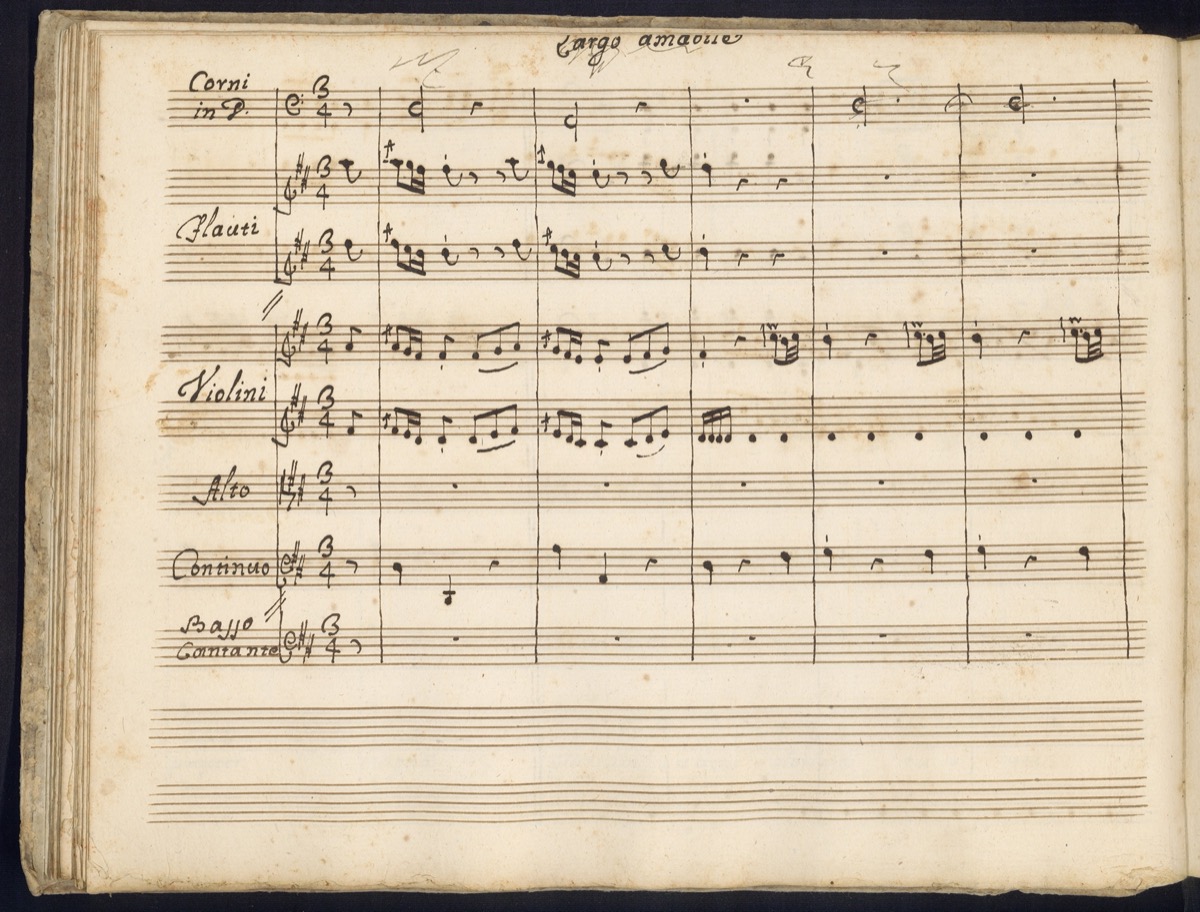 Largo amabile
Corni
in D.
3
4
Flauti
3
4
3
4
Violini
3
4
3
4
Alto
3
4
Continuo
3
4
Basso
Cantante
3
4